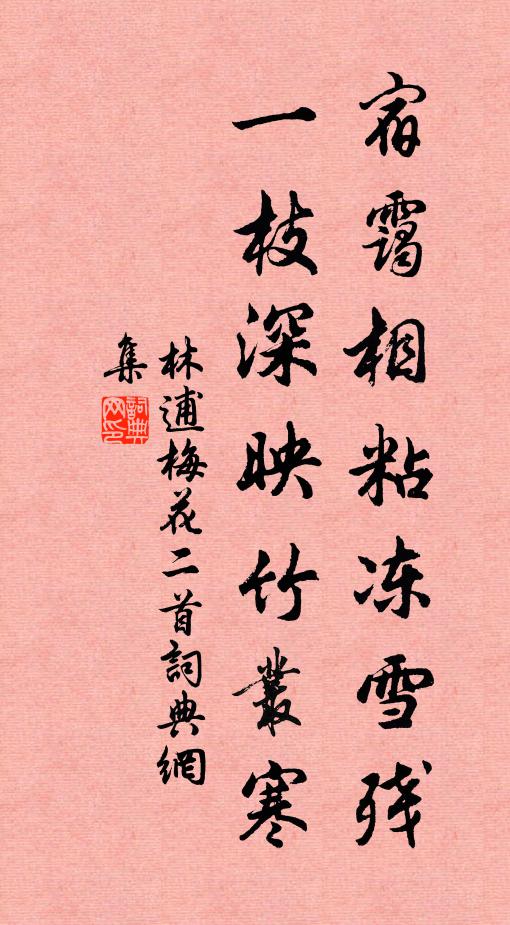 宿靄相粘冻雪残
一枝深映竹叢寒
林逋梅花二首詞典網
集
詞典
网印